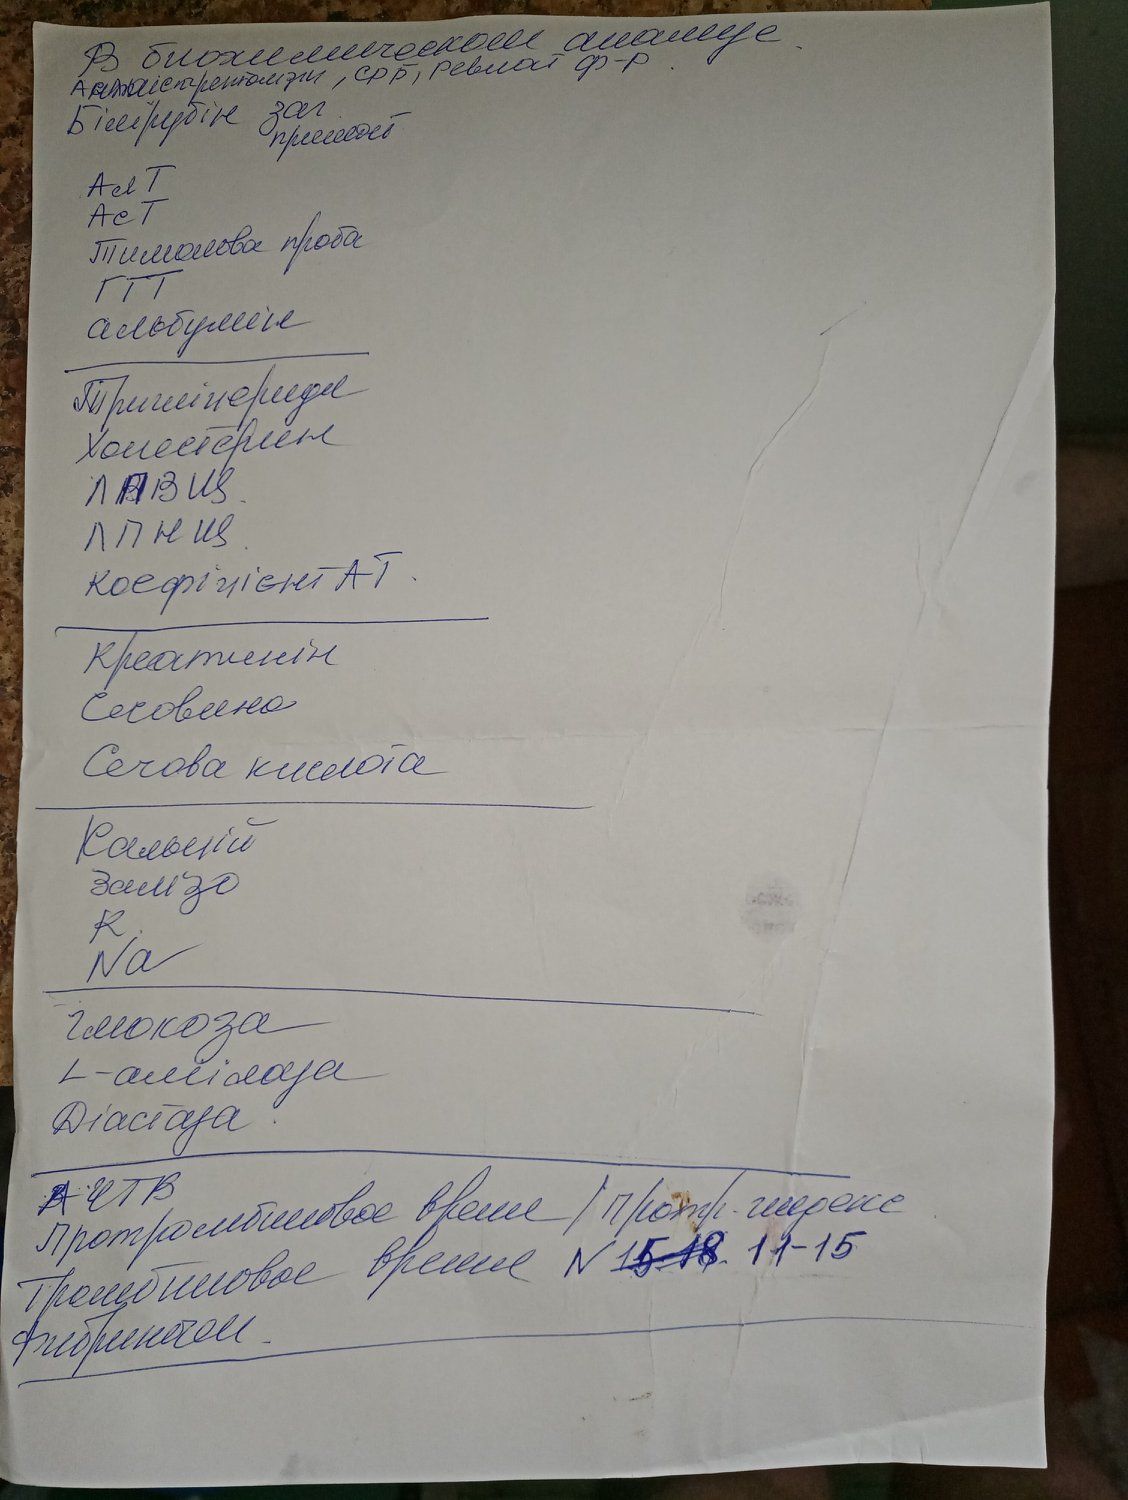 В биохимическом анализе.
Антистрептолизин, СРБ, Ревмат ф-р
Білірубін заг.
прямой
АлТ
АсТ
Тимолова проба
ГТТ
альбумін
Тригліцериди
Холестерин
ЛПВЩ.
ЛПНЩ
Коефіцієнт АТ.
Креатинін
Сечовина
Сечова кислота
Кальцій
Залізо
К
Na
Глюкоза
L-амілаза
Діастаза.
АЧТВ
Протромбиновое время / Протр. индекс
Тромбиновое время N 11-15
Фибриноген.